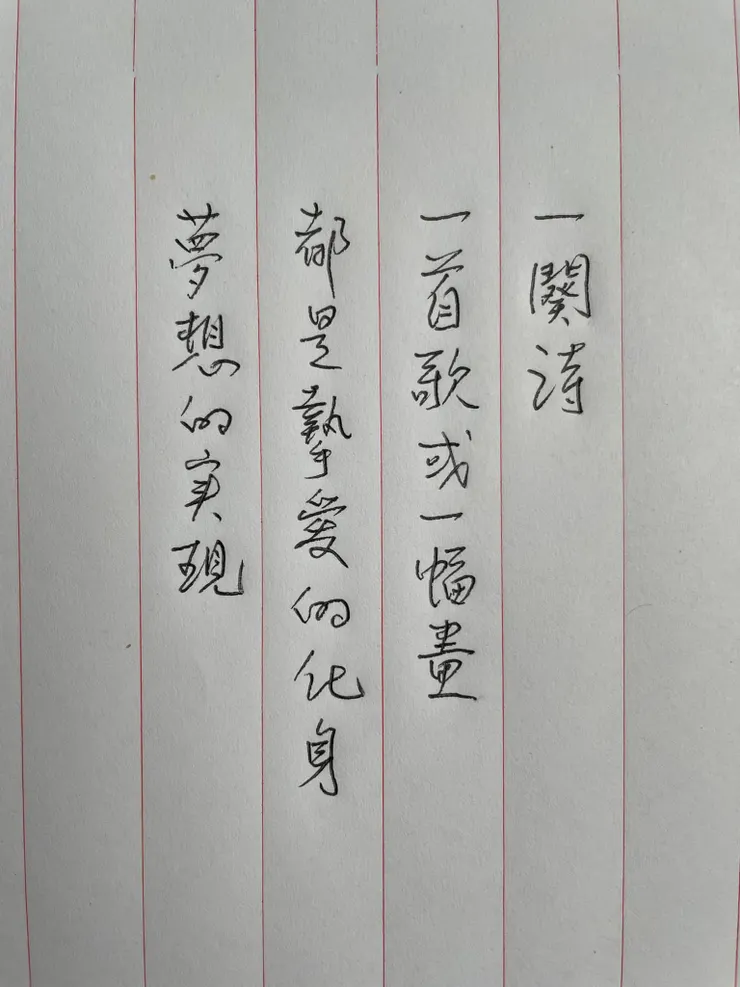 一闋诗
一首歌或一幅畫
都是摯愛的化身
夢想的实現